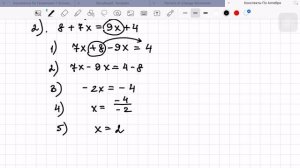 2). 8 + 7x = 9x + 4
1) 7x + 8 - 9x = 4
2) 7x - 9x = 4 - 8
3) - 2x = - 4
4) x = -4/-2
5) x = 2